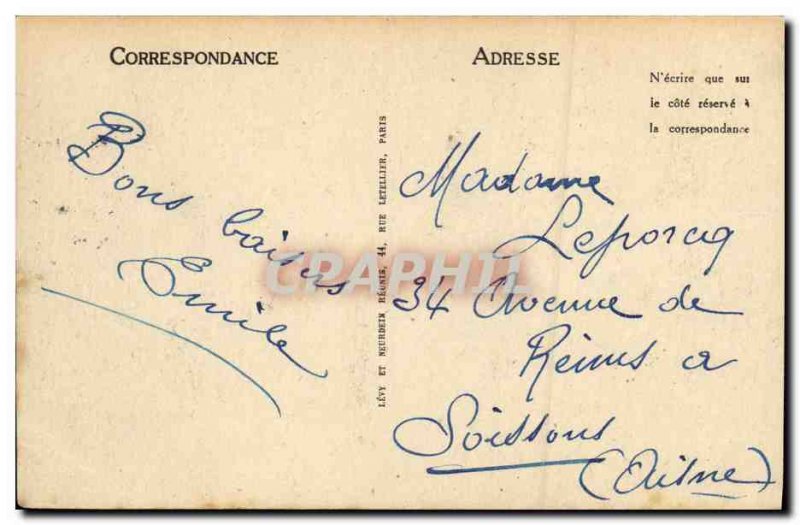 CORRESPONDANCE
ADRESSE
N'écrire que sur
le côté réservé à
la correspondance
Bons baisers
Emile
LÉVY ET NEURDEIN RÉUNIS, 44, RUE LETELLIER, PARIS
Madame
Leporcq
34 Avenue de
Reims a
Soissons
(Aisne)
CPARAPHIL